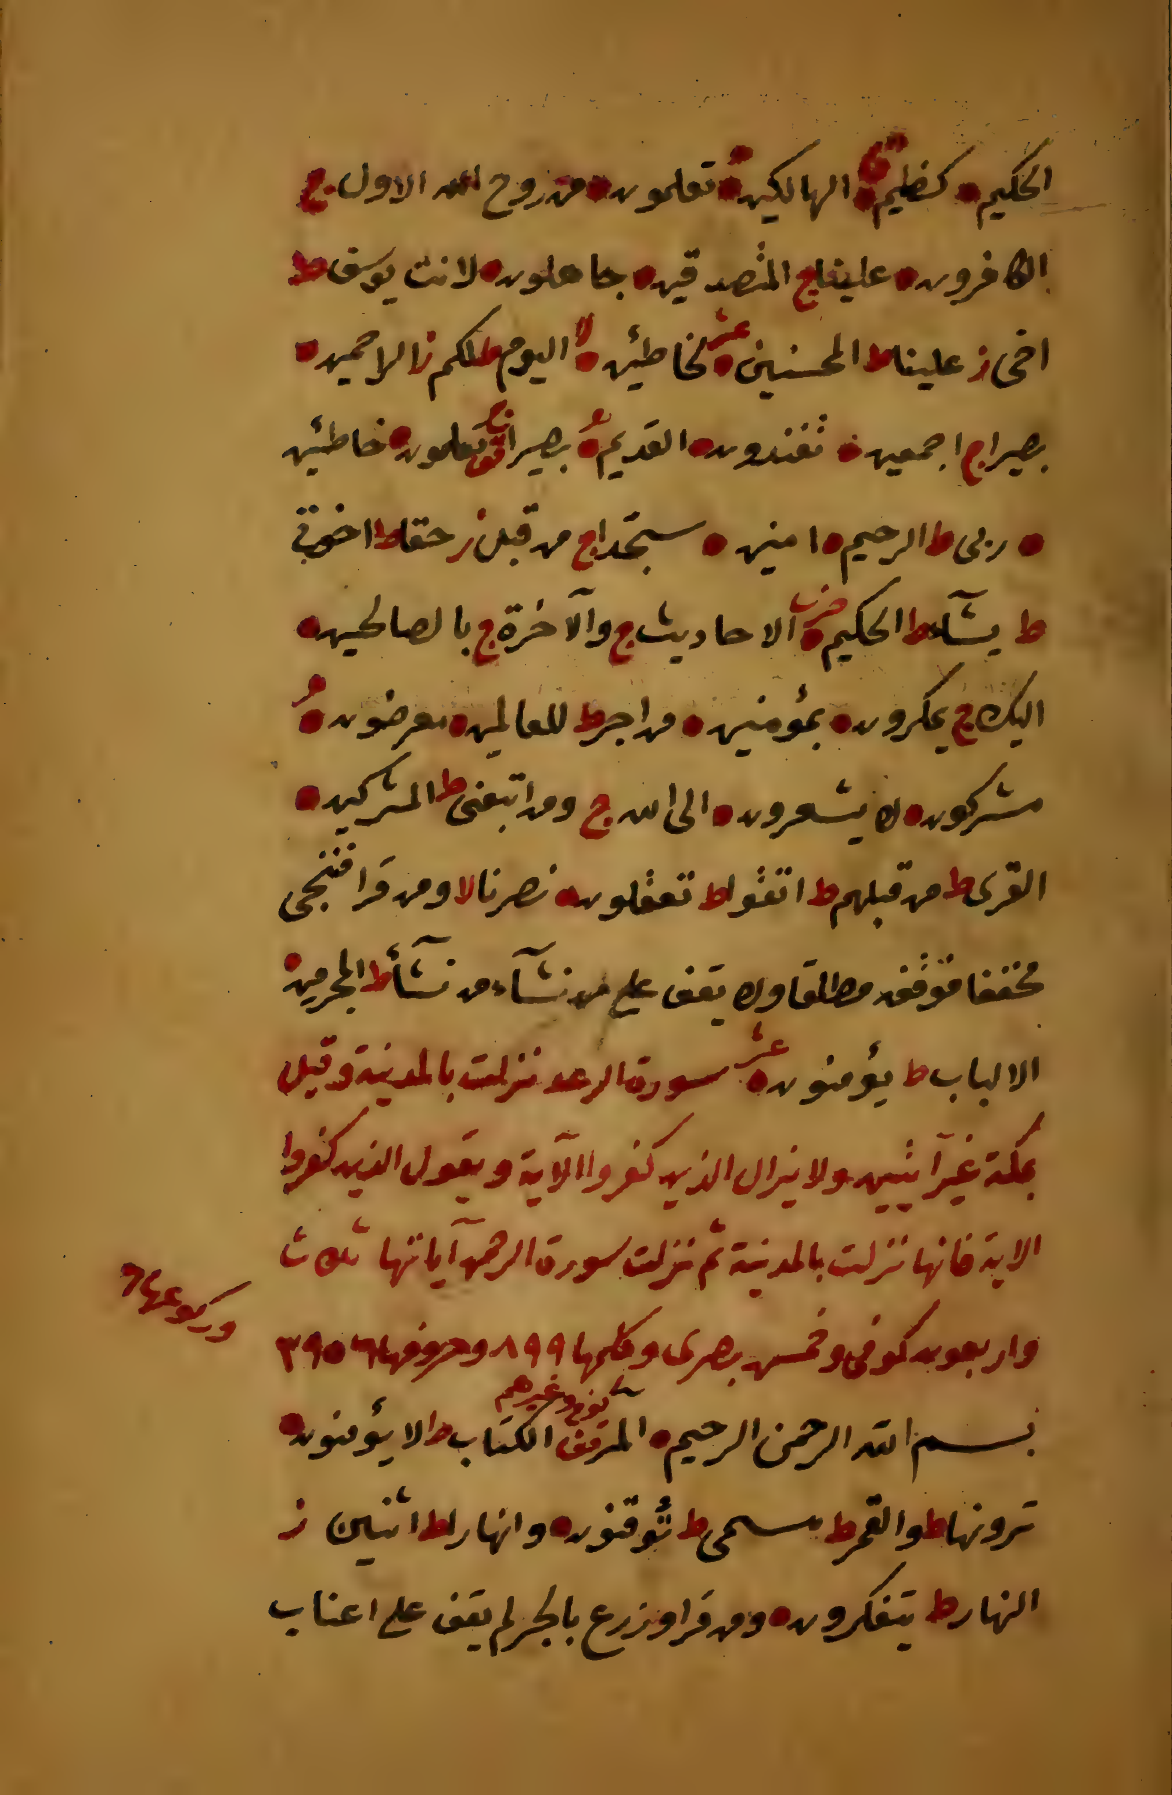 الحكيم ● كظيم ● ق الهالكين ● تعلمون ● من روح الله الاول ج
الكافرون ● علينا ج المتصدقين ● جاهلون ● لانت يوسف ط
اخى ز علينا ط المحسنين ● عشر لخاطئين ● لا اليوم ط لكم ز الراحمين ●
بصيرا ج اجمعين ● تفندون ● القديم ● بصيرا قف تعلمون ● خاطئين
● ربى ط الرحيم ● امنين ● سجّدا ج من قبل ز حقا ط اخوتى
ط يشآء ط الحكيم ● حزب الاحاديث ج والآخرة ج بالصالحين ●
اليك ج يمكرون ● بمؤمنين ● من اجر ط للعالمين ● معرضون ●
مشركون ● لا يشعرون ● الى الله ج ومن اتبعنى ط المشركين ●
القرى ط من قبلهم ط اتقوا ط تعقلون ● نصرنا لا ومن قرا فننجى
مخففا فوقفه مطلقا ولا يقف على من نشآء من نشآء ط المجرمين ●
الالباب ط يؤمنون ● عشر سورة الرعد نزلت بالمدينة وقيل
بمكة غير آيتين ولا يزال الذين كفروا الآية ويقول الذين كفروا
الاية فانها نزلت بالمدينة ثم نزلت سورة الرحمن آياتها ثلاث
واربعون كوفى وخمس بصرى وكلمها ٨٩٩ وحروفها ٣٩٥٦
وركوعها ٦
بسم الله الرحمن الرحيم ● المر قف كوفى وغيرهم الكتاب ط لا يؤمنون ●
ترونها ط والقمر ط مسمى ط توقنون ● وانهارا ط اثنين ز
النهار ط يتفكرون ● ومن قرا وزرع بالجر لم يقف على اعناب